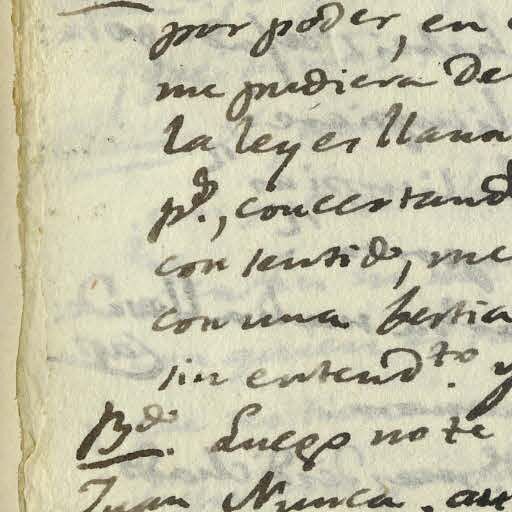 por poder, en
me pudiera de
la ley es llana
pd., concertand
con sentido, me
con una bestia
sin entend.to y
Bd. Luego no te
Juan Nunca. au